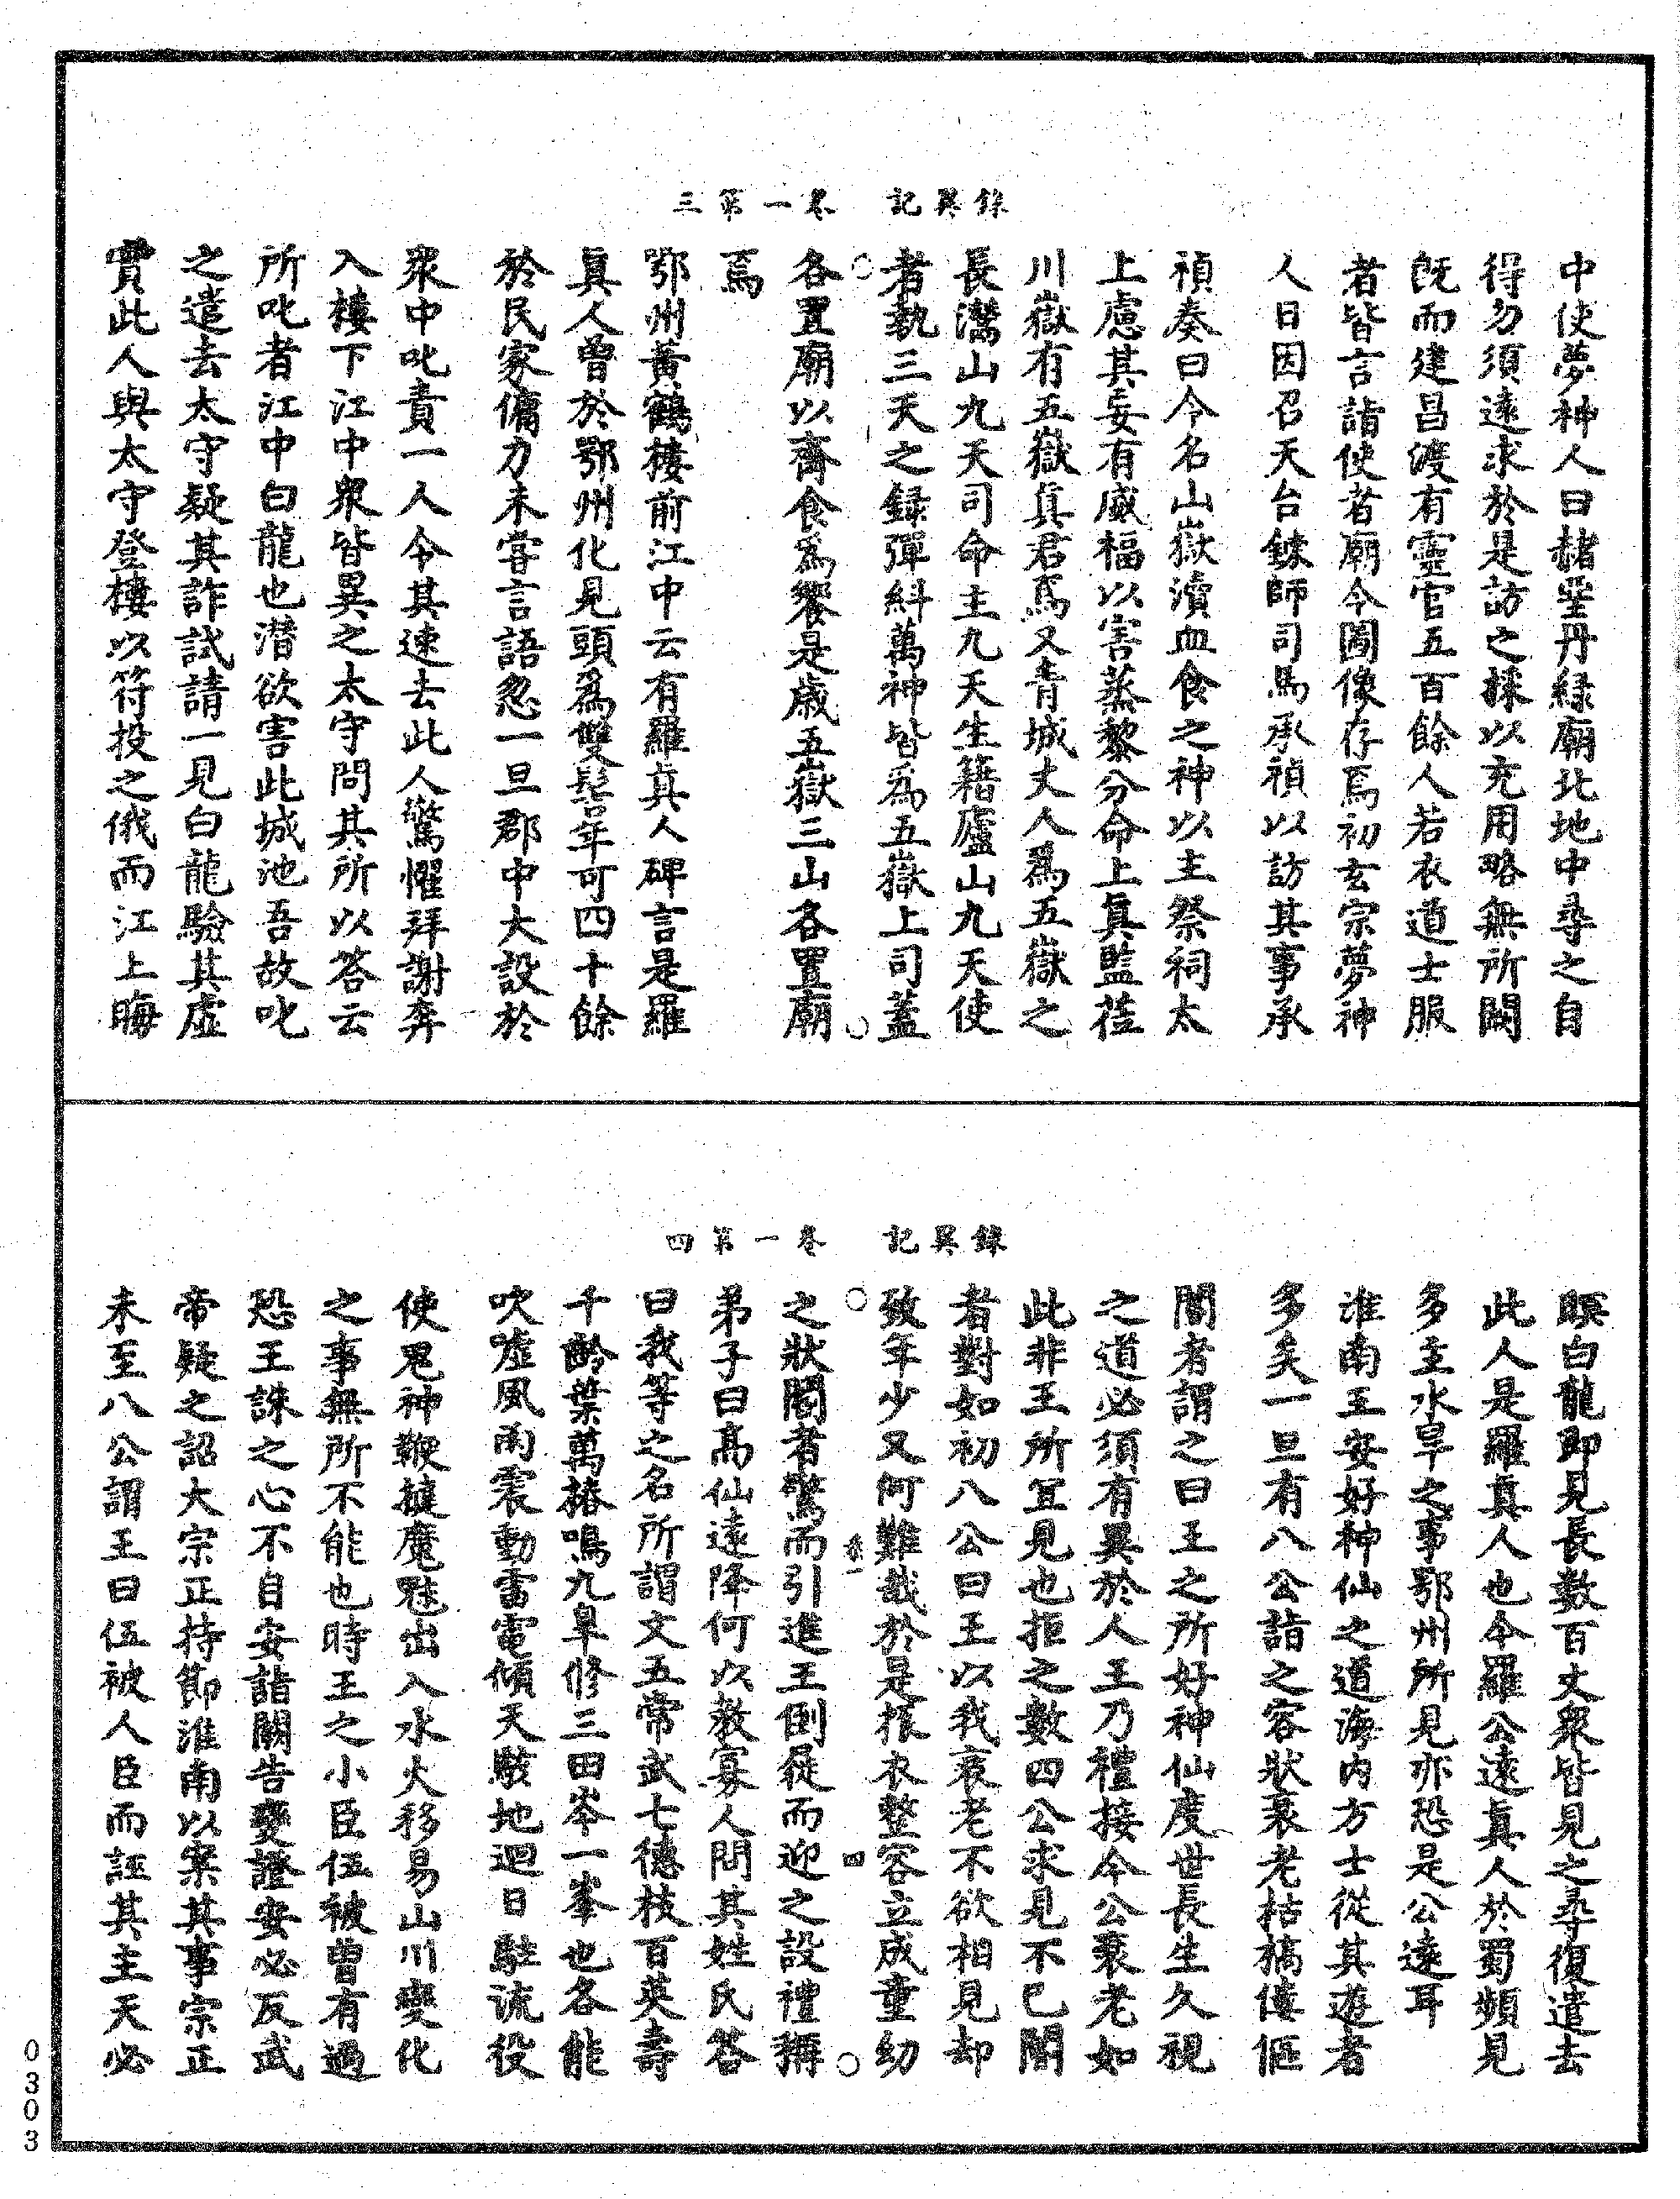 錄異記　卷一第三
中使夢神人曰赭堊丹緑廟北地中尋之自
得勿須遠求於是訪之採以充用略無所闕
旣而建昌渡有靈官五百餘人若衣道士服
者皆言詣使者廟今圖像存焉初玄宗夢神
人日因召天台鍊師司馬承禎以訪其事承
禎奏曰今名山嶽瀆血食之神以主祭祠太
上慮其妄有威福以害蒸黎分命上眞監莅
川嶽有五嶽眞君焉又青城丈人爲五嶽之
長灊山九天司命主九天生籍廬山九天使
者執三天之録彈糾萬神皆爲五嶽上司蓋
各置廟以齋食爲饗是歲五嶽三山各置廟
焉
鄂州黃鶴樓前江中云有羅眞人碑言是羅
眞人曾於鄂州化見頭爲雙髻年可四十餘
於民家傭力未嘗言語忽一旦郡中大設於
衆中叱責一人令其速去此人驚懼拜謝奔
入樓下江中衆皆異之太守問其所以答云
所叱者江中白龍也潛欲害此城池吾故叱
之遣去太守疑其詐試請一見白龍驗其虛
實此人與太守登樓以符投之俄而江上晦
錄異記　卷一第四
暝白龍即見長數百丈衆皆見之尋復遣去
此人是羅真人也今羅公遠眞人於蜀頻見
多主水旱之事鄂州所見亦恐是公遠耳
淮南王安好神仙之道海内方士從其遊者
多矣一旦有八公詣之容狀衰老枯槁傴僂
閽者謂之曰王之所好神仙度世長生久視
之道必須有異於人王乃禮接今公衰老如
此非王所宜見也拒之數四公求見不已閽
者對如初八公曰王以我衰老不欲相見却
致年少又何難哉於是振衣整容立成童幼
之狀閽者驚而引進王倒屣而迎之設禮稱
弟子曰高仙遠降何以教寡人問其姓氏答
曰我等之名所謂文五常武七德枝百英壽
千齡葉萬椿鳴九皐修三田岑一峯也各能
吹噓風雨震動雷電傾天駭地迴日駐流役
使鬼神鞭撻魔魅出入水火移易山川變化
之事無所不能也時王之小臣伍被曾有過
恐王誅之心不自安詣闕告變證安必反武
帝疑之詔大宗正持節淮南以案其事宗正
未至八公謂王曰伍被人臣而誣其主天必
0303